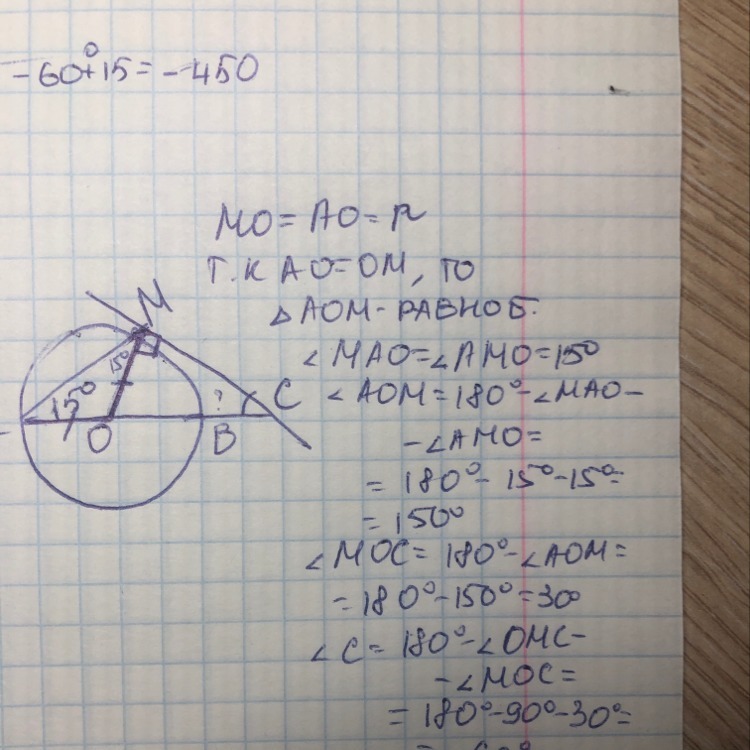 -60°+15=-450
MO=AO=R
Т.К AO=OM, ТО
△AOM-РАВНОБ.
∠MAO=∠AMO=15°
∠AOM=180°-∠MAO-
-∠AMO=
= 180°-15°-15°=
=150°
∠MOC=180°-∠AOM=
=180°-150°=30°
∠C=180°-∠OMC-
-∠MOC=
=180°-90°-30°=
= 60°
M
15°
15°
?
C
O
B